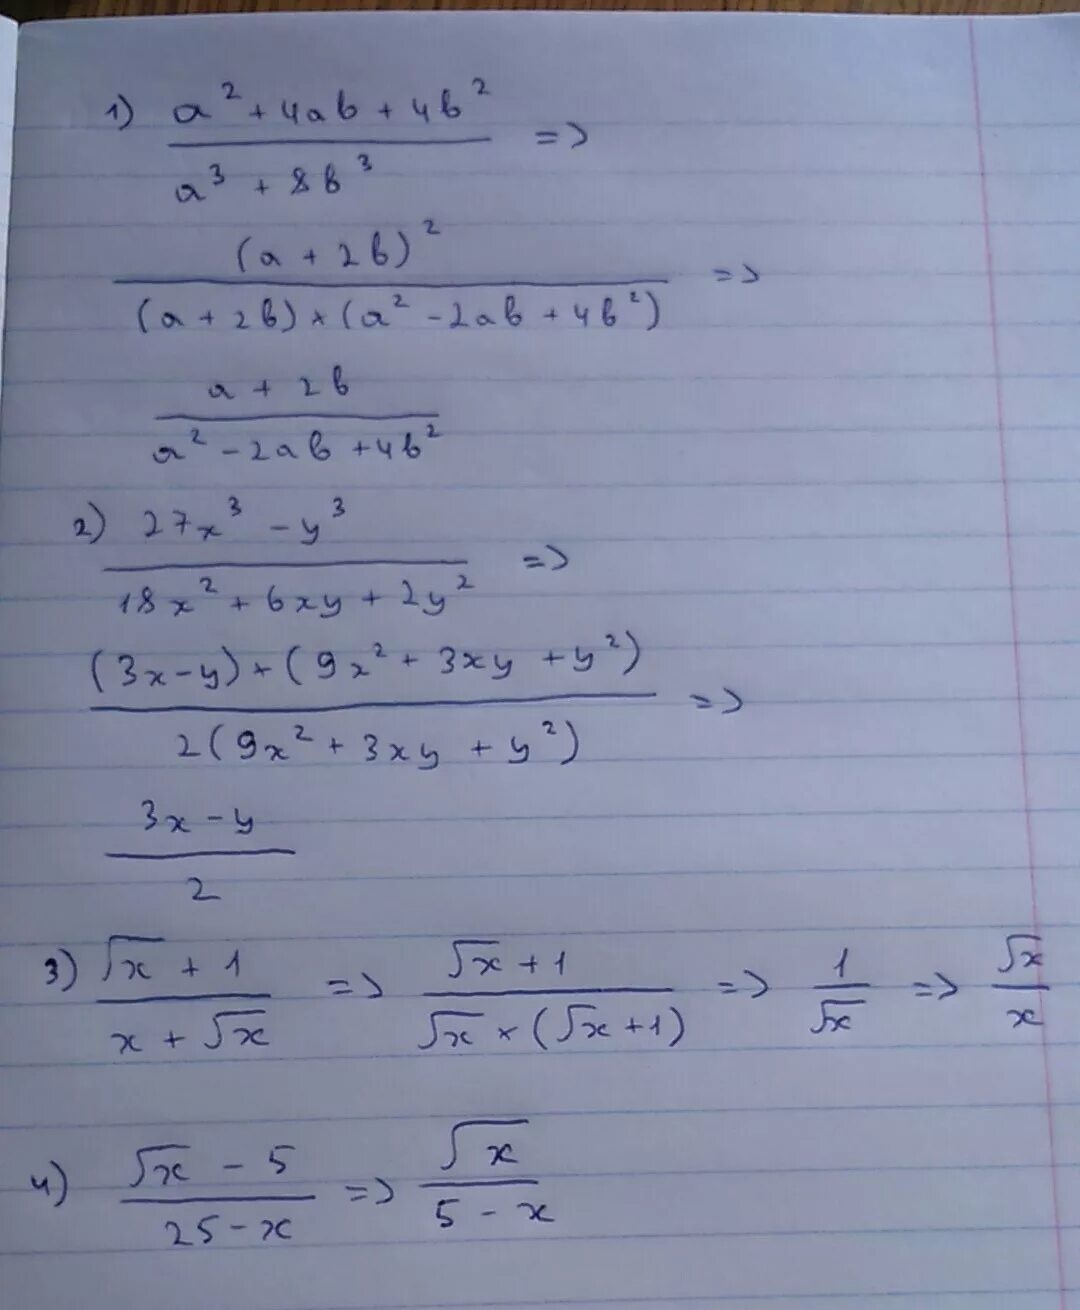 1) a² + 4ab + 4b² / a³ + 8b³ =>
(a + 2b)² / (a + 2b) × (a² - 2ab + 4b²) =>
a + 2b / a² - 2ab + 4b²
2) 27x³ - y³ / 18x² + 6xy + 2y² =>
(3x - y) × (9x² + 3xy + y²) / 2(9x² + 3xy + y²) =>
3x - y / 2
3) √x + 1 / x + √x => √x + 1 / √x × (√x + 1) => 1 / √x => √x / x
4) √x - 5 / 25 - x => √x / 5 - x